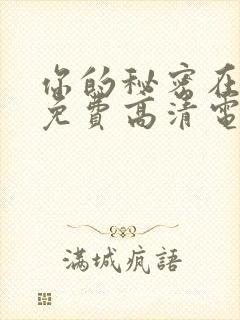 你的秘密在
免費高清電
滿城疯語